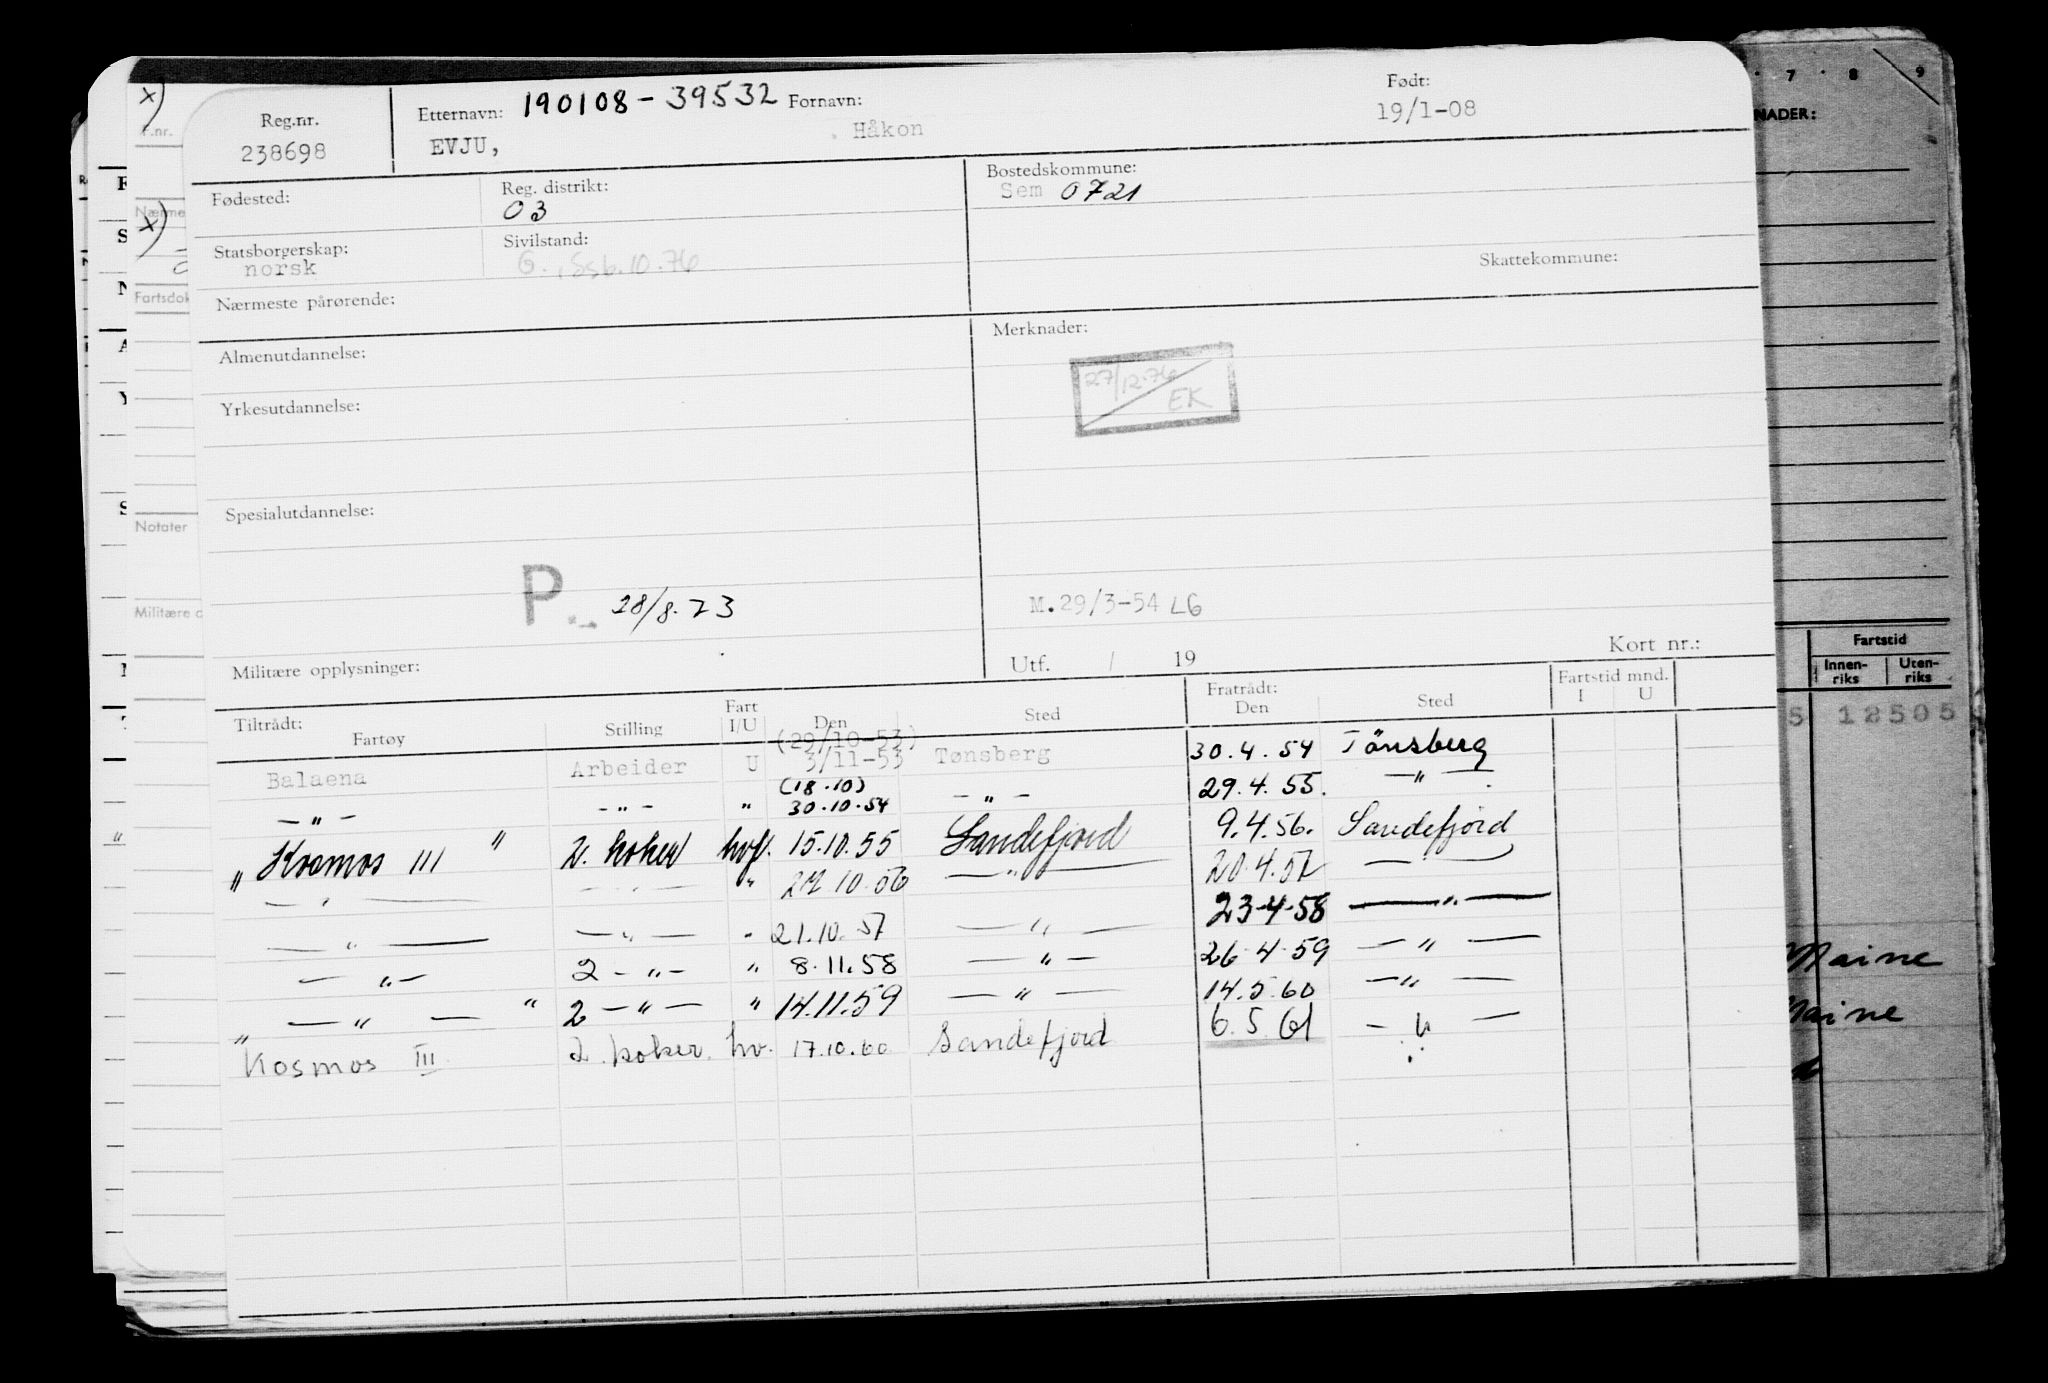 Reg.nr. Etternavn: 190108-39532 Fornavn: Født:
238698 EVJU, Håkon 19/1-08
Fødested: Reg. distrikt: Bostedskommune:
03 Sem 0721
Statsborgerskap: Sivilstand: Skattekommune:
norsk G. 10.76
Nærmeste pårørende:
Almenutdannelse: Merknader:
27/12.76
EK
Yrkesutdannelse:
Spesialutdannelse:
P. 28/8.73 M.29/3-54 LG
Militære opplysninger: Utf. / 19 Kort nr.:
Tiltrådt: Fratrådt: Fartstid mnd.
Fartøy Stilling Fart I/U Den Sted Den Sted I U
(29/10-53)
Balaena Arbeider U 3/11-53 Tønsberg 30.4.54 Tönsberg
(18.10)
— " — - " - " 30.10.54 - " - 29.4.55. — " —
" Kosmos III " 2. koker hvf. 15.10.55 Sandefjord 9.4.56. Sandefjord
— " — — " — " 27.10.56 — " — 20.4.57 — " —
— " — — " — " 21.10.57 — " — 23-4-58 — " —
— " — 2 — " — " 8.11.58 — " — 26.4.59 — " —
" — " — " 2 — " — " 14.11.59 — " — 14.5.60 — " —
Kosmos III 2. koker. hv. 17.10.60 Sandefjord 6.5.61 — " —
x)
x)
F.nr.
Nærme
Fartsdok
Notater
Militære o
7 8 9
NADER:
Fartstid
Innen-riks Uten-riks
5 12505 5
Maine
Maine